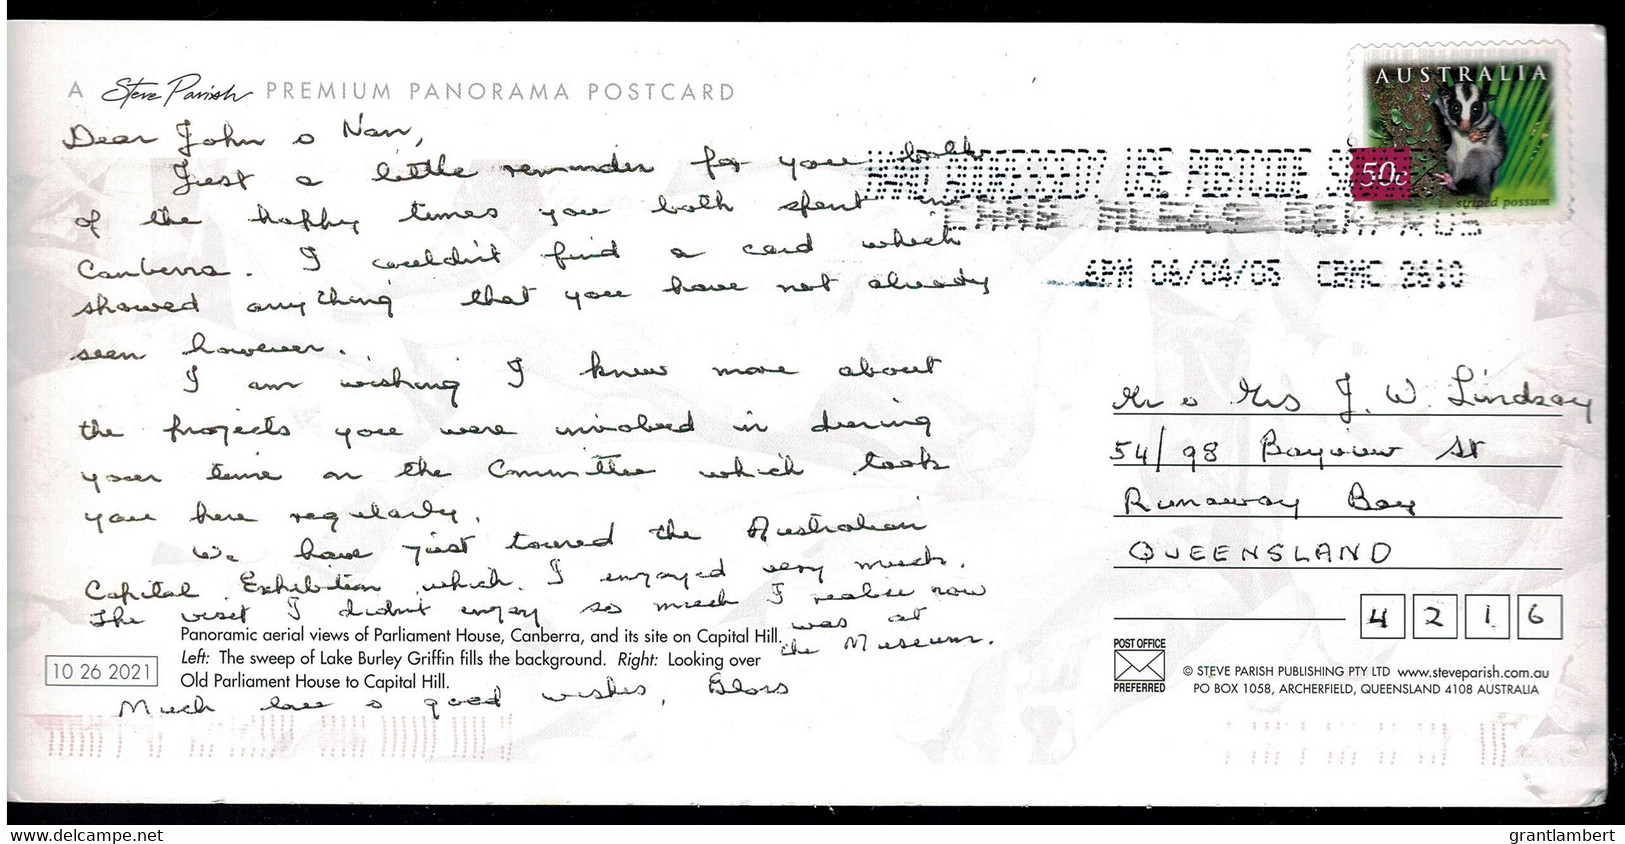 A Steve Parish PREMIUM PANORAMA POSTCARD
AUSTRALIA
50c
striped possum
Dear John & Nan,
Just a little reminder for you both
of the happy times you both spent in
Canberra. I couldn't find a card which
showed anything that you have not already
seen however.
I am wishing I knew more about
the projects you were involved in during
your time on the Committee which took
you here regularly.
We have just toured the Australian
Capital Exhibition which I enjoyed very much.
The visit I didn't enjoy so much I realise now
was at
the Museum.
Much love & good wishes, Gloss
Panoramic aerial views of Parliament House, Canberra, and its site on Capital Hill.
Left: The sweep of Lake Burley Griffin fills the background. Right: Looking over
Old Parliament House to Capital Hill.
10 26 2021
USE POSTCODE
6PM 06/04/05 CBMC 2610
Mr & Mrs J. W. Lindsay
54/98 Bayview St
Runaway Bay
QUEENSLAND
4 2 1 6
POST OFFICE
PREFERRED
© STEVE PARISH PUBLISHING PTY LTD www.steveparish.com.au
PO BOX 1058, ARCHERFIELD, QUEENSLAND 4108 AUSTRALIA
www.delcampe.net
grantlambert